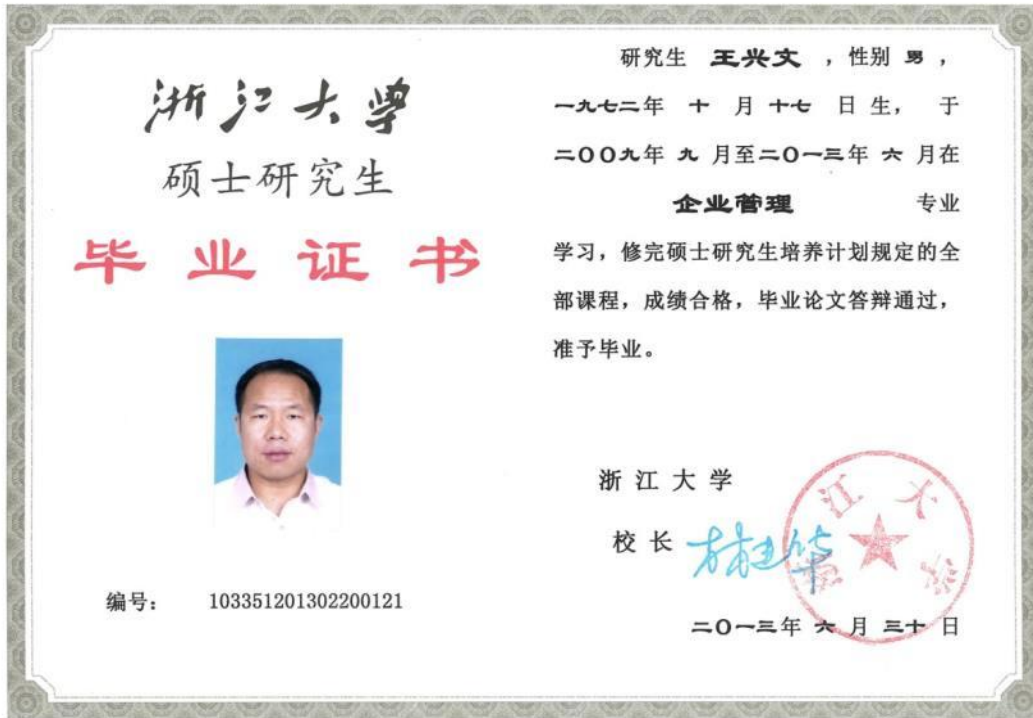 浙江大学
硕士研究生
毕业证书
编号： 103351201302200121
研究生 王兴文 ，性别 男 ，
一九七二年 十 月 十七 日 生， 于
二００九年 九 月至二０一三年 六 月在
企业管理 专业
学习，修完硕士研究生培养计划规定的全
部课程，成绩合格，毕业论文答辩通过，
准予毕业。
浙 江 大 学
校 长
浙江大学
二０一三年 六 月 三十 日